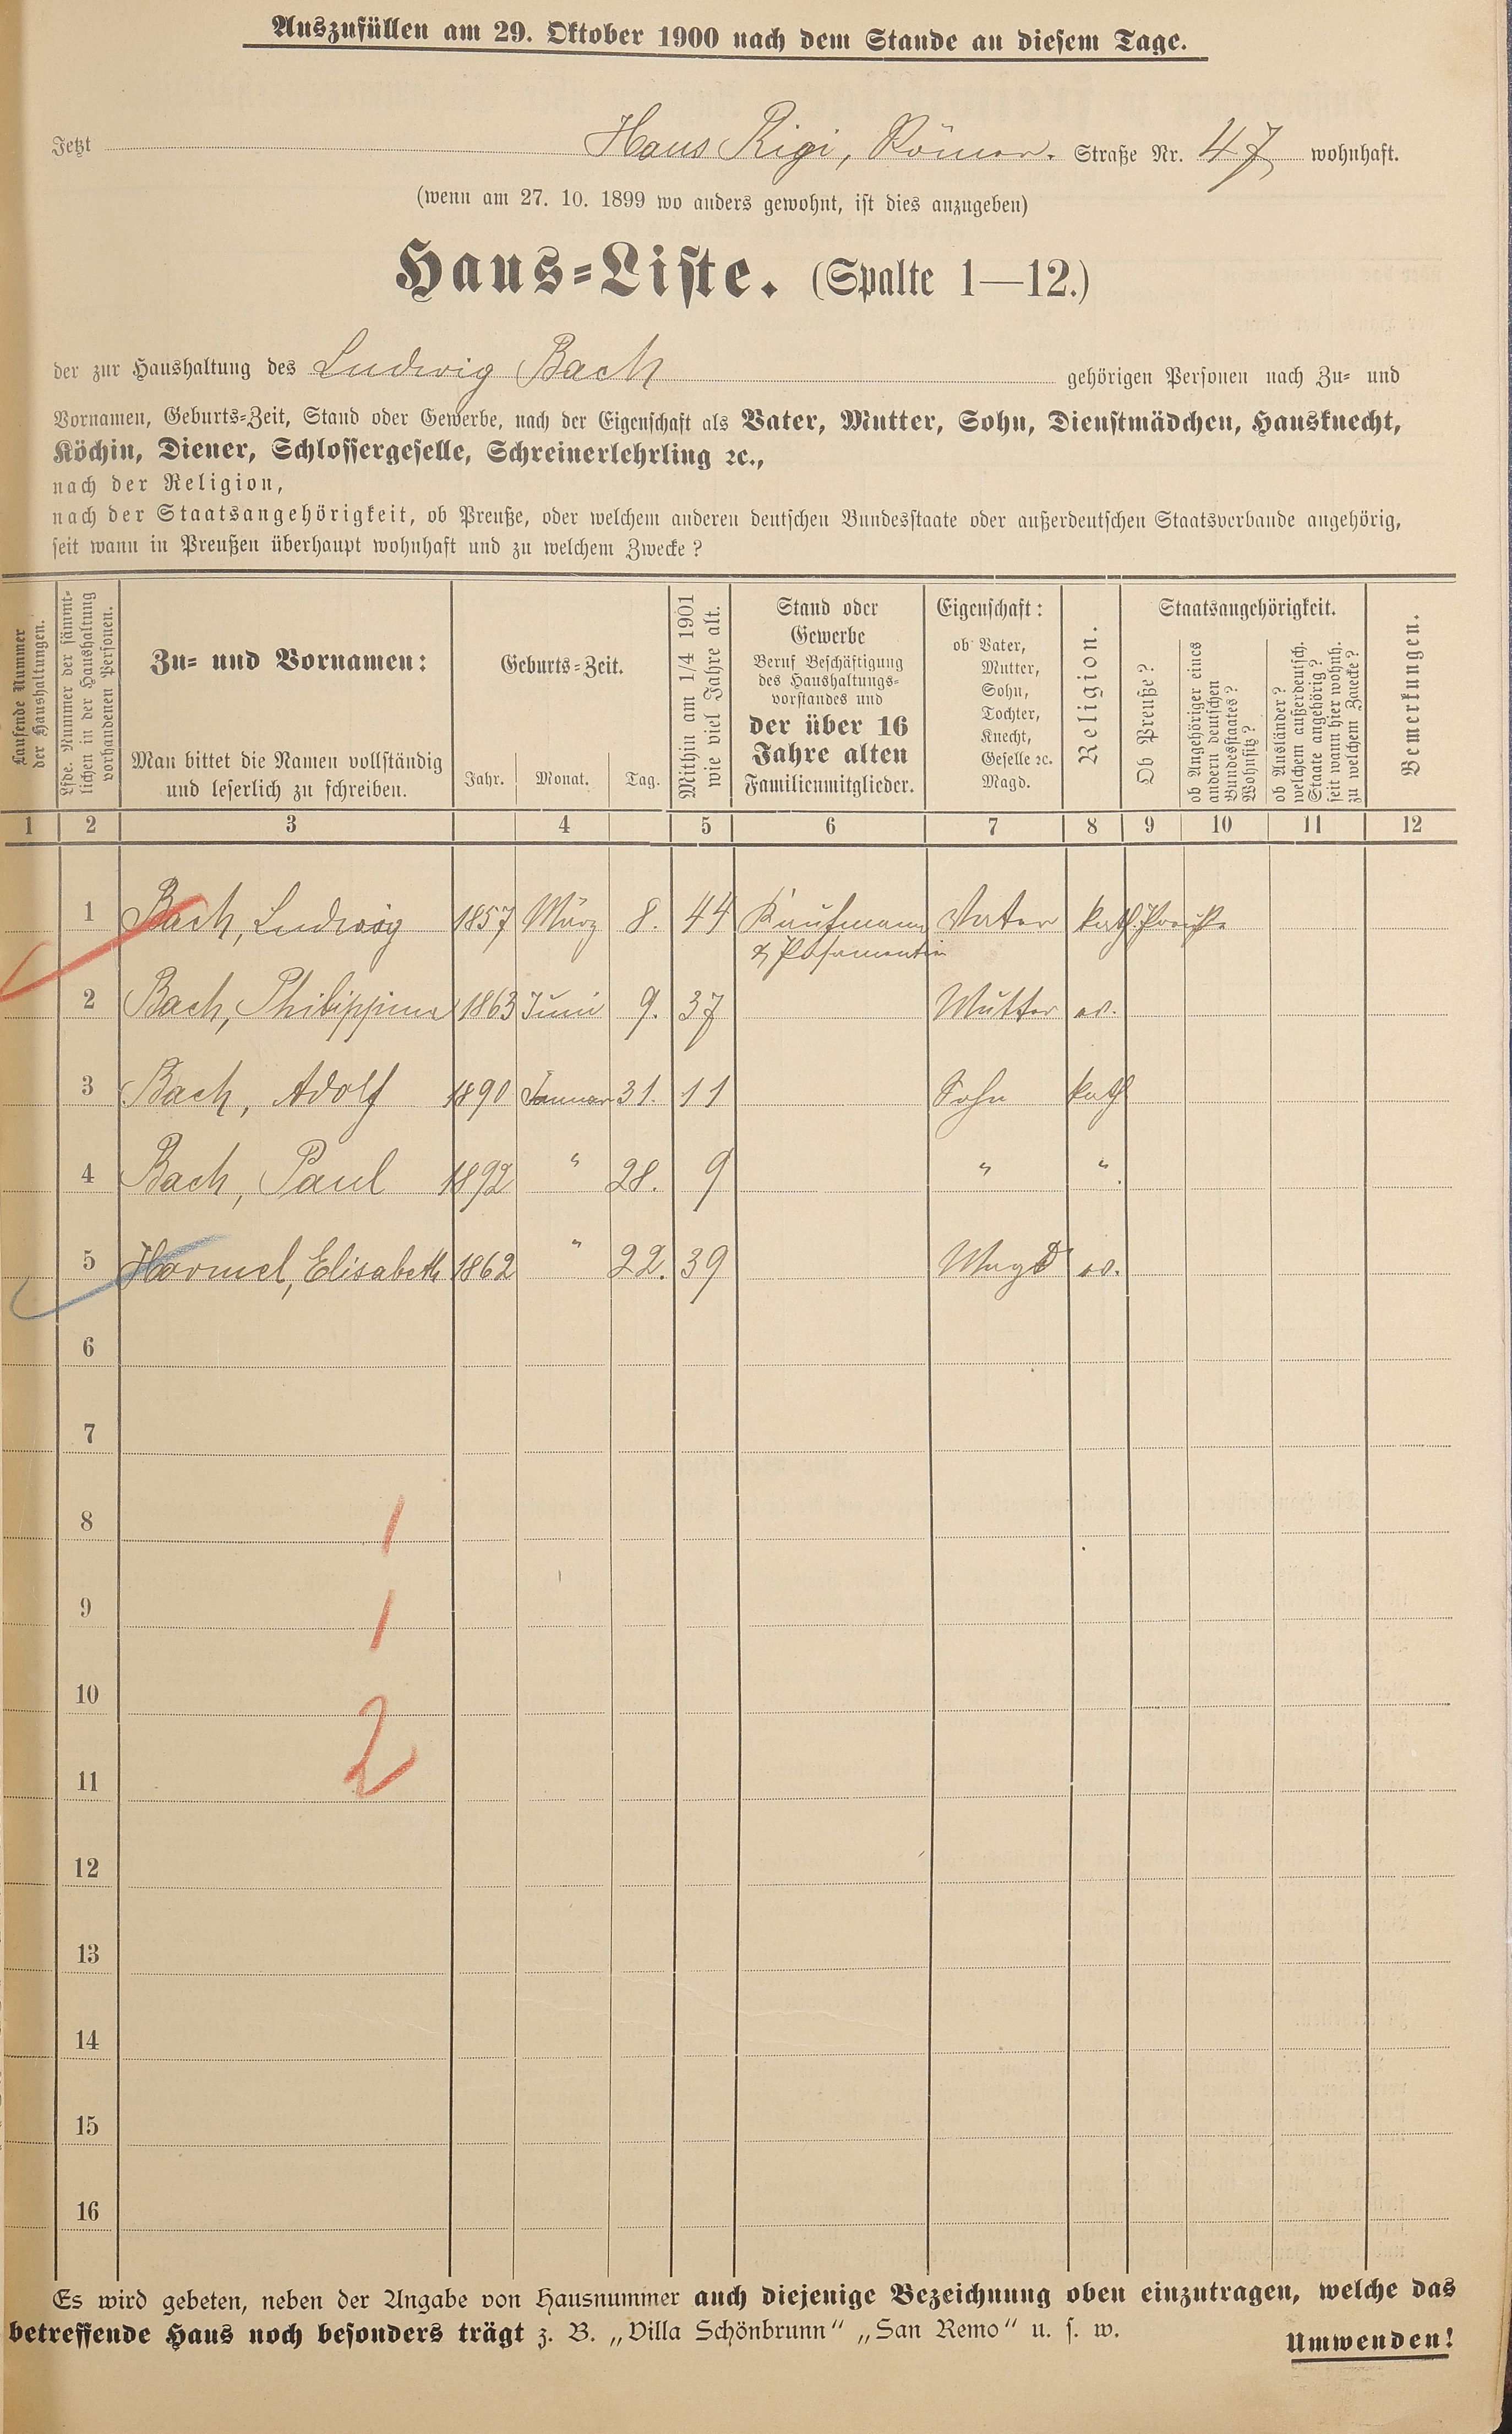 Auszufüllen am 29. Oktober 1900 nach dem Stande an diesem Tage.
Jetzt Haus Rigi, Römer. Straße Nr. 47 wohnhaft.
(wenn am 27. 10. 1899 wo anders gewohnt, ist dies anzugeben)
Haus=Liste. (Spalte 1—12.)
der zur Haushaltung des Ludwig Bach gehörigen Personen nach Zu= und
Vornamen, Geburts=Zeit, Stand oder Gewerbe, nach der Eigenschaft als Vater, Mutter, Sohn, Dienstmädchen, Hausknecht,
Köchin, Diener, Schlossergeselle, Schreinerlehrling ꝛc.,
nach der Religion,
nach der Staatsangehörigkeit, ob Preuße, oder welchem anderen deutschen Bundesstaate oder außerdeutschen Staatsverbande angehörig,
seit wann in Preußen überhaupt wohnhaft und zu welchem Zwecke?
Laufende Nummer
der Haushaltungen.
Lfde. Nummer der sämmt=
lichen in der Haushaltung
vorhandenen Personen.
Zu= und Vornamen:
Man bittet die Namen vollständig
und leserlich zu schreiben.
Geburts=Zeit.
Jahr. Monat. Tag.
Mithin am 1/4 1901
wie viel Jahre alt.
Stand oder
Gewerbe
Beruf Beschäftigung
des Haushaltungs=
vorstandes und
der über 16
Jahre alten
Familienmitglieder.
Eigenschaft:
ob Vater,
Mutter,
Sohn,
Tochter,
Knecht,
Geselle ꝛc.
Magd.
Religion.
Staatsangehörigkeit.
Ob Preuße?
ob Angehöriger eines
andern deutschen
Bundesstaates?
Wohnsitz?
ob Ausländer?
welchem außerdeutsch.
Staate angehörig?
seit wann hier wohnh.
zu welchem Zwecke?
Bemerkungen.
1 2 3 4 5 6 7 8 9 10 11 12
1 Bach, Ludwig 1857 März 8. 44 Kaufmann Vater kath. Preuße
& Posamentier
2 Bach, Philippine 1863 Juni 9. 37 Mutter ev.
3 Bach, Adolf 1890 Januar 31. 11 Sohn kath
4 Bach, Paul 1892 " 28. 9 " "
5 Hormel, Elisabeth 1862 " 22. 39 Magd ev.
6
7
8 1
9 1
10
2
11
12
13
14
15
16
Es wird gebeten, neben der Angabe von Hausnummer auch diejenige Bezeichnung oben einzutragen, welche das
betreffende Haus noch besonders trägt z. B. „Villa Schönbrunn“ „San Remo“ u. s. w.
Umwenden!